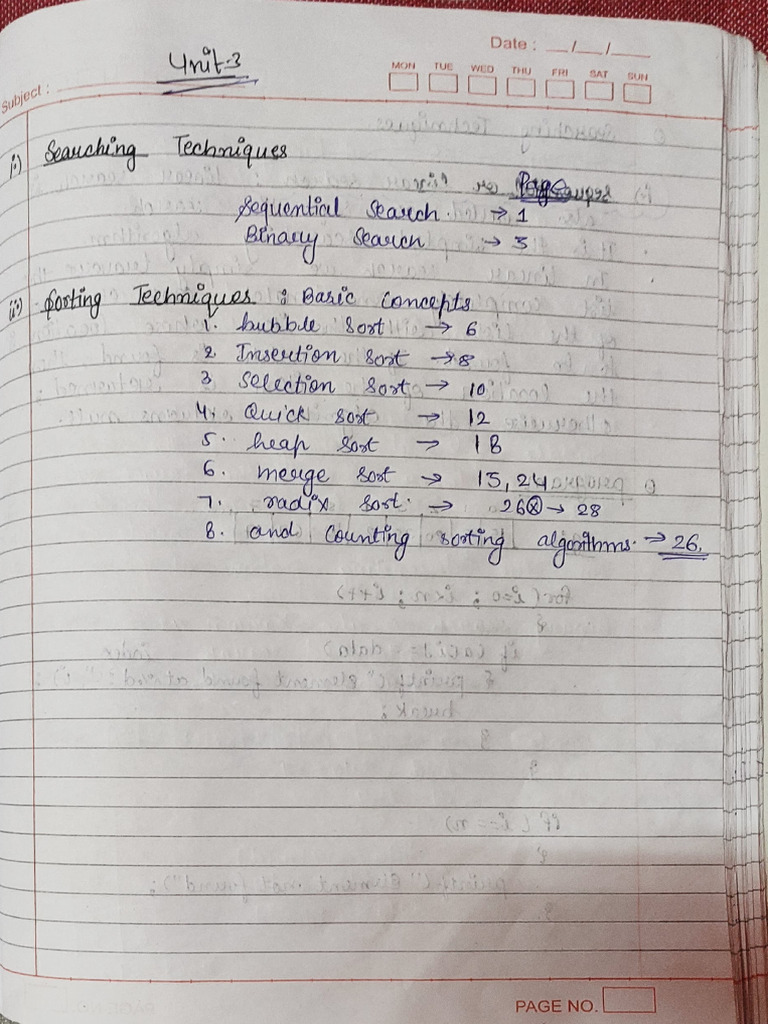 Date : __/__/__
Unit-3
MON TUE WED THU FRI SAT SUN
Subject :
i) Searching Techniques
Sequential Search. → 1
Binary Search → 3
ii) Sorting Techniques : Basic Concepts
1. bubble sort → 6
2 Insertion sort → 8
3 selection sort → 10
4. Quick sort → 12
5. heap sort → 18
6. merge sort → 15, 24
7. radix sort. → 26 → 28
8. and counting sorting algorithms. → 26.
PAGE NO.